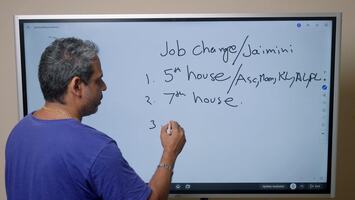 Job Change/Jaimini
1. 5th house/Asc, Moon, KL, AL, PL
2. 7th house.
3